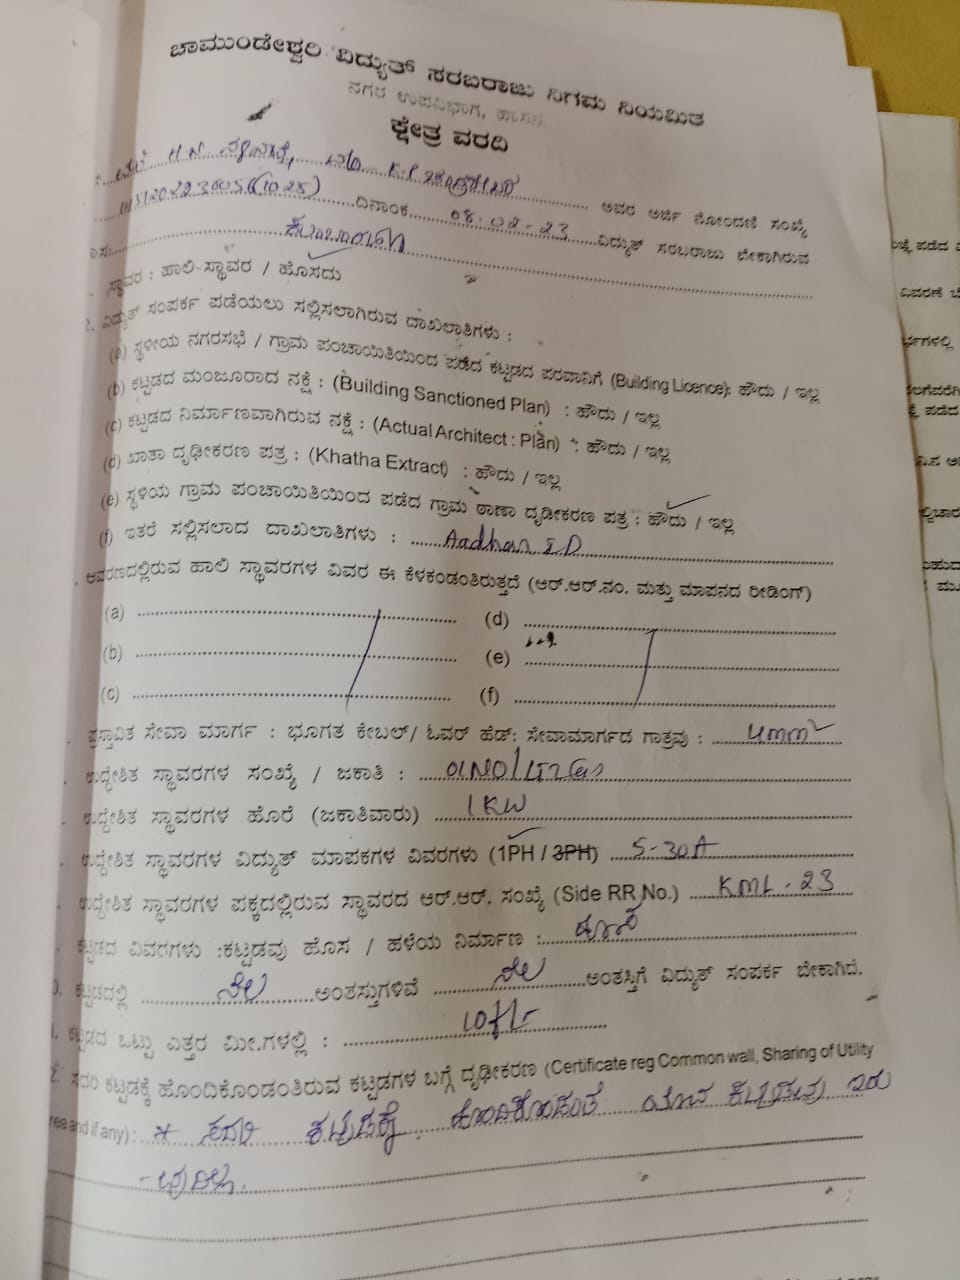 ಚಾಮುಂಡೇಶ್ವರಿ ವಿದ್ಯುತ್ ಸರಬರಾಜು ನಿಗಮ ನಿಯಮಿತ
ನಗರ ಉಪವಿಭಾಗ, ಹಾಸನ
ಕ್ಷೇತ್ರ ವರದಿ
H N
ಅವರ ಅರ್ಜಿ ನೋಂದಣಿ ಸಂಖ್ಯೆ
ದಿನಾಂಕ 08-02-23 ವಿದ್ಯುತ್ ಸರಬರಾಜು ಬೇಕಾಗಿರುವ
ಸ್ಥಾವರ : ಹಾಲಿ-ಸ್ಥಾವರ / ಹೊಸದು
2. ವಿದ್ಯುತ್ ಸಂಪರ್ಕ ಪಡೆಯಲು ಸಲ್ಲಿಸಲಾಗಿರುವ ದಾಖಲಾತಿಗಳು :
(a) ಸ್ಥಳೀಯ ನಗರಸಭೆ / ಗ್ರಾಮ ಪಂಚಾಯಿತಿಯಿಂದ ಪಡೆದ ಕಟ್ಟಡದ ಪರವಾನಿಗೆ (Building Licence): ಹೌದು / ಇಲ್ಲ
(b) ಕಟ್ಟಡದ ಮಂಜೂರಾದ ನಕ್ಷೆ : (Building Sanctioned Plan) : ಹೌದು / ಇಲ್ಲ
(c) ಕಟ್ಟಡದ ನಿರ್ಮಾಣವಾಗಿರುವ ನಕ್ಷೆ : (Actual Architect : Plan) : ಹೌದು / ಇಲ್ಲ
(d) ಖಾತಾ ದೃಢೀಕರಣ ಪತ್ರ : (Khatha Extract) : ಹೌದು / ಇಲ್ಲ
(e) ಸ್ಥಳಿಯ ಗ್ರಾಮ ಪಂಚಾಯಿತಿಯಿಂದ ಪಡೆದ ಗ್ರಾಮ ಠಾಣಾ ದೃಡೀಕರಣ ಪತ್ರ : ಹೌದು / ಇಲ್ಲ
(f) ಇತರೆ ಸಲ್ಲಿಸಲಾದ ದಾಖಲಾತಿಗಳು : Aadhar ID
ಆವರಣದಲ್ಲಿರುವ ಹಾಲಿ ಸ್ಥಾವರಗಳ ವಿವರ ಈ ಕೆಳಕಂಡಂತಿರುತ್ತದೆ (ಆರ್.ಆರ್.ನಂ. ಮತ್ತು ಮಾಪನದ ರೀಡಿಂಗ್)
(a) (d)
(b) (e)
(c) (f)
ಪ್ರಸ್ತಾವಿತ ಸೇವಾ ಮಾರ್ಗ : ಭೂಗತ ಕೇಬಲ್/ ಓವರ್ ಹೆಡ್: ಸೇವಾಮಾರ್ಗದ ಗಾತ್ರವು : 4mm²
ಉದ್ದೇಶಿತ ಸ್ಥಾವರಗಳ ಸಂಖ್ಯೆ / ಜಕಾತಿ : 01NO/
ಉದ್ದೇಶಿತ ಸ್ಥಾವರಗಳ ಹೊರೆ (ಜಕಾತಿವಾರು) 1KW
ಉದ್ದೇಶಿತ ಸ್ಥಾವರಗಳ ವಿದ್ಯುತ್ ಮಾಪಕಗಳ ವಿವರಗಳು (1PH / 3PH) 5-30A
ಉದ್ದೇಶಿತ ಸ್ಥಾವರಗಳ ಪಕ್ಕದಲ್ಲಿರುವ ಸ್ಥಾವರದ ಆರ್.ಆರ್. ಸಂಖ್ಯೆ (Side RR No.) KML-23
ಕಟ್ಟಡದ ವಿವರಗಳು :ಕಟ್ಟಡವು ಹೊಸ / ಹಳೆಯ ನಿರ್ಮಾಣ :
ಕಟ್ಟಡದಲ್ಲಿ ನೆಲ ಅಂತಸ್ತುಗಳಿವೆ ನೆಲ ಅಂತಸ್ತಿಗೆ ವಿದ್ಯುತ್ ಸಂಪರ್ಕ ಬೇಕಾಗಿದೆ.
ಕಟ್ಟಡದ ಒಟ್ಟು ಎತ್ತರ ಮೀ.ಗಳಲ್ಲಿ : 10ft
ಸದರಿ ಕಟ್ಟಡಕ್ಕೆ ಹೊಂದಿಕೊಂಡಂತಿರುವ ಕಟ್ಟಡಗಳ ಬಗ್ಗೆ ದೃಢೀಕರಣ (Certificate reg Common wall, Sharing of Utility
rea and if any) : * ಸದರಿ ಕಟ್ಟಡಕ್ಕೆ ಹೊಂದಿಕೊಂಡಂತೆ ಯಾವ ಕಟ್ಟಡವು ಇರು
-ವುದಿಲ್ಲ.